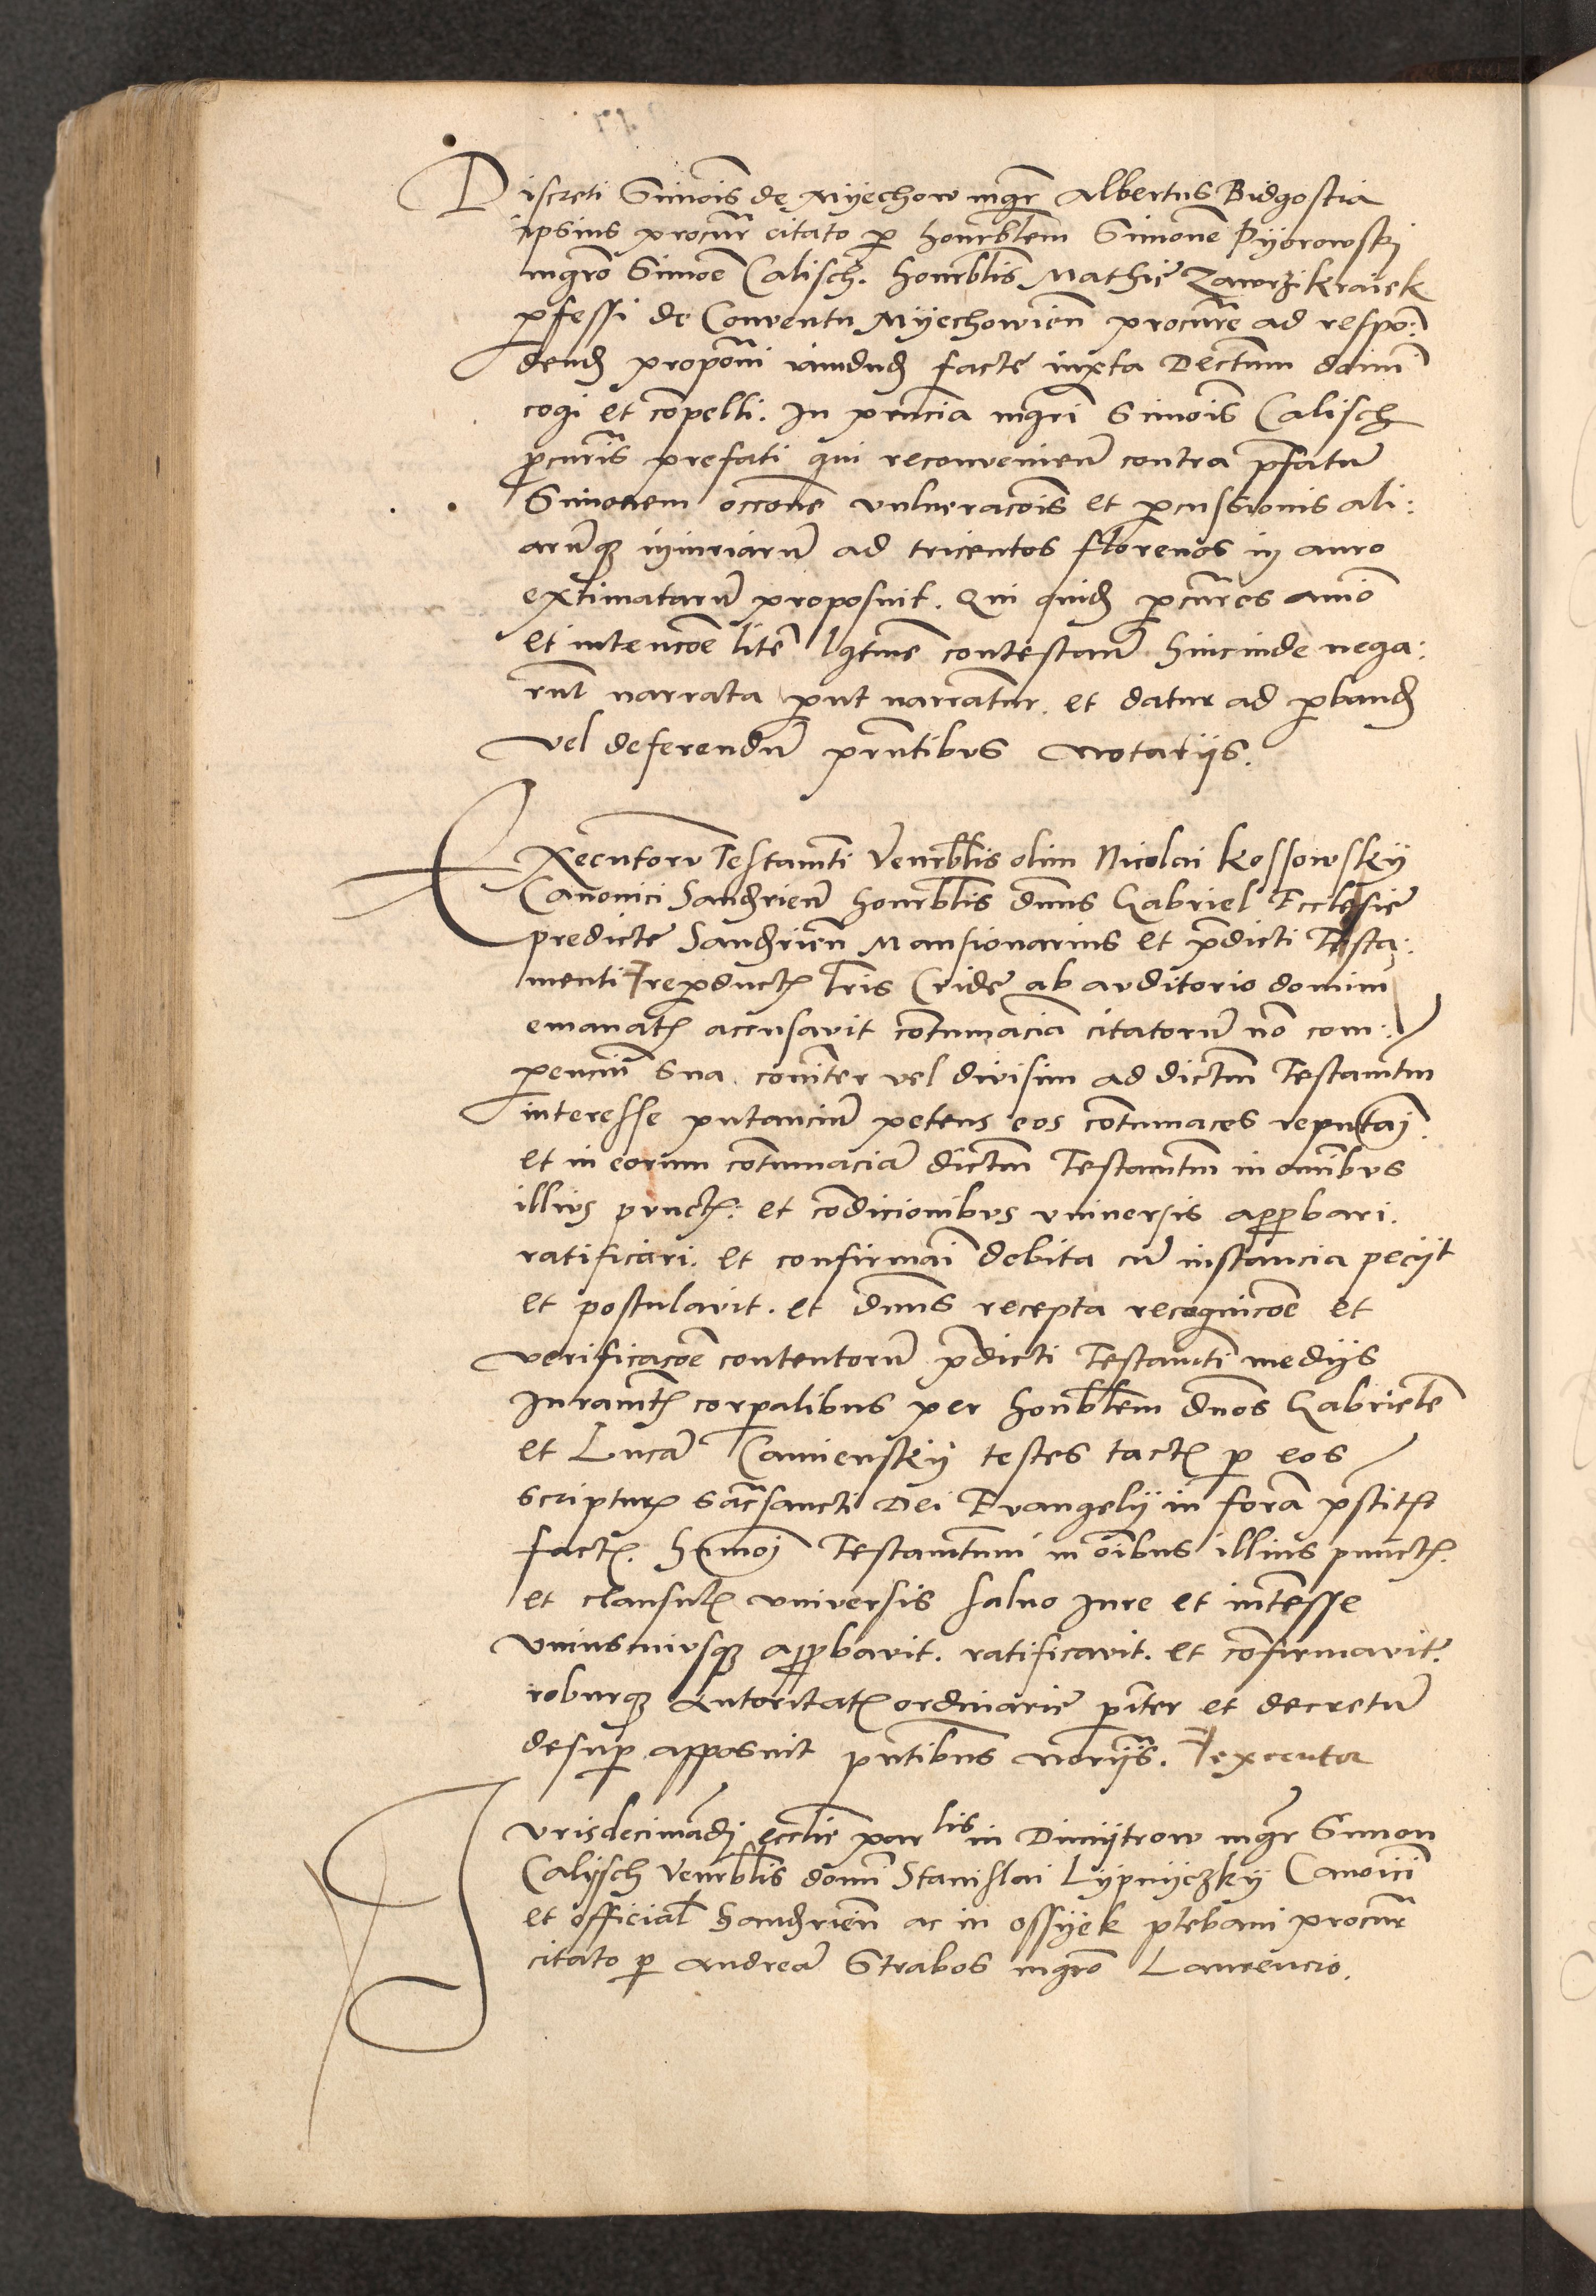 Discreti Simois de Myechow mgr Albertus Bidgostia
ipsius procur citato p honrblem Simone Pyorowskj
mgro Simoe Calisch. honrblis Mathie Zawrzikraiek
pfessi de Conventu Myechowien procure ad respo:
dend proponi iamdud facte iuxta Dectum domi
cogi et compelli. In pncia mgri Simois Calisch
pcuris prefati qui reconveniem contra pfatu
Simonem occone vulneracois et percussionis ali:
arumq iniuriaru ad tricentos florenos in auro
extimataru proposuit. Qui quid pcures animo
et intencoe lite contestan hincinde nega:
runt narrata put narrantur. et datur ad pband
vel deferendu pntibus Notarijs.
Executoru Testamti Venrblis olim Nicolai Kossowsky
Canonici Sandrien honrblis dnus Gabriel Ecclesie
predicte Sandrien Mansionarius et pdicti Testa:
menti reproductis lris Cride ab auditorio domini
emanatis accusavit contumacia citatoru no com:
penciu Sua coniter vel divisim ad dictum Testamtm
interesse putanciu petens eos contumaces reputari
et in eorum contumacia dictm Testamtm in omibus
illius punctis: et condicionibus universis approbari.
ratificari. et confirmari debita cu instancia peciit
et postulavit. et dnus recepta recognicoe et
verificacoe contentoru pdicti Testamti medijs
Iuramtis corporalibus per honrblem dnos Gabriele
et Luca Camiensky testes tactis p eos
scripturis sacrsancti Dei Evangelij in forma pstitis
factis. Testamtum in oibus illius punctis.
et clausulis universis salvo iure et intresse
uniuscuiusq approbavit. ratificavit. et confirmavit.
roburq Autoritatis ordinarie pariter et decretu
desup apposuit pntibus noriis. executor
Iurisdecimadj ecclie parlis in Dmijtrow mgr Simon
Calijsch Venrblis domi Stanislai Lypnyczky Canoici
et official Sandrien ac in Ossyek plebani procur
citato p Andrea Strabos mgro Laurencio.